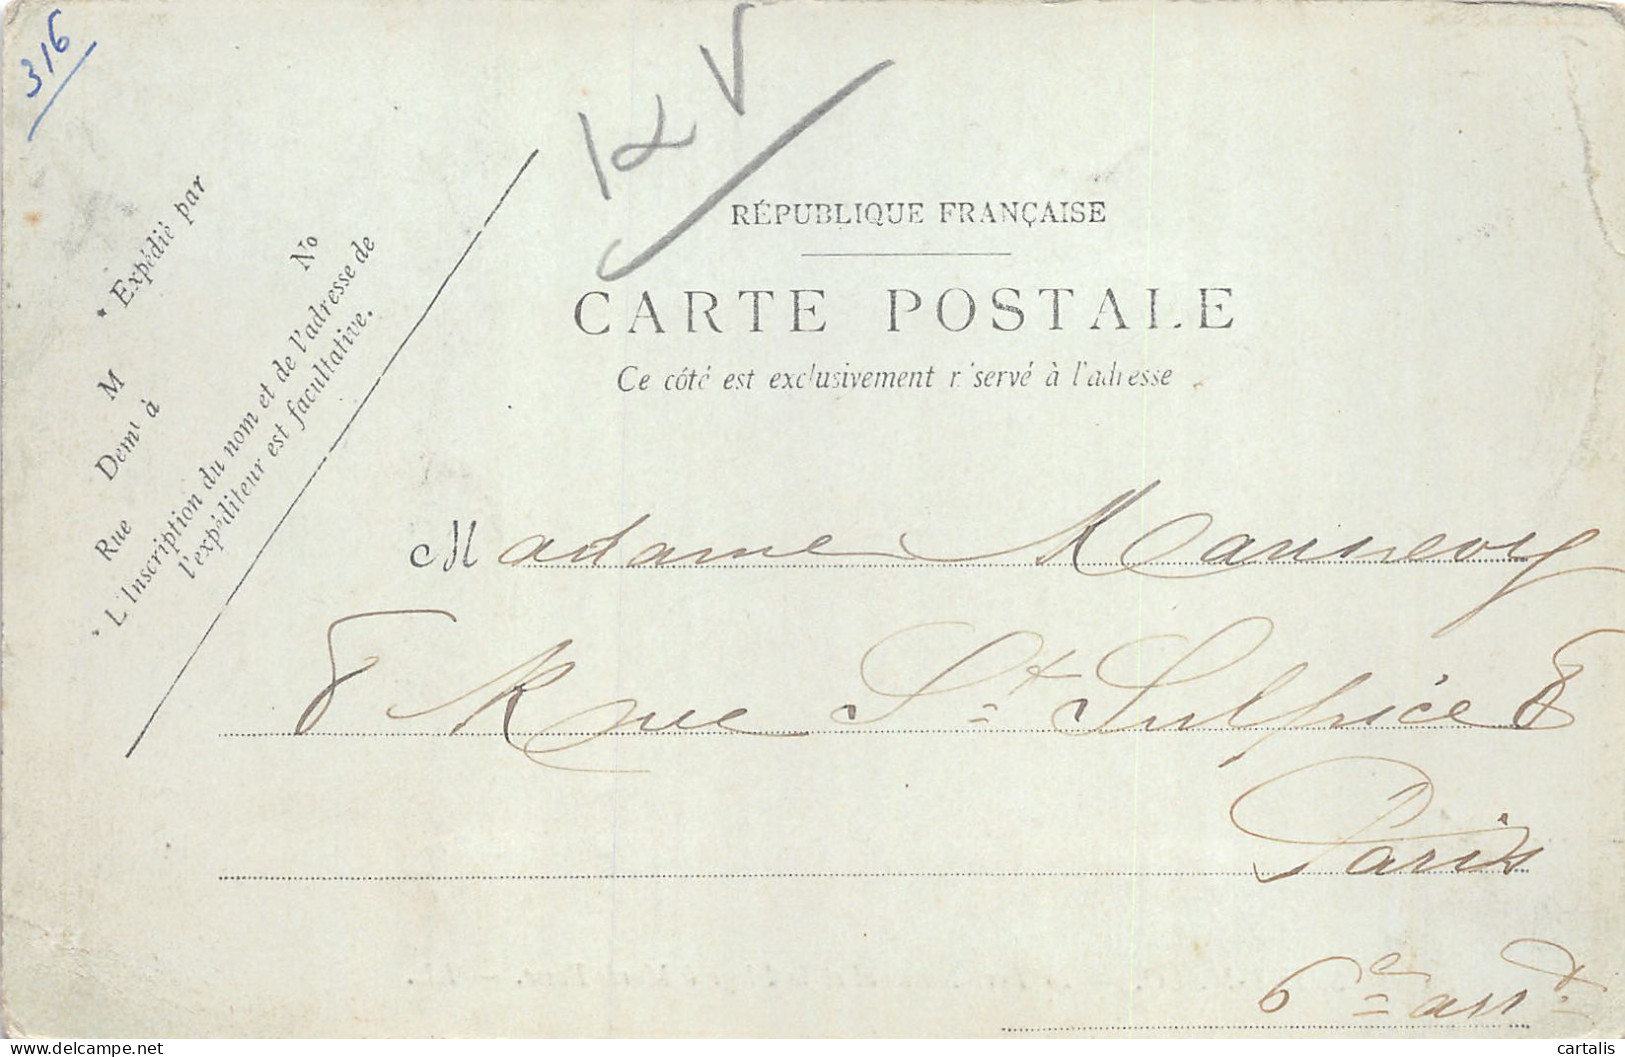 316
RÉPUBLIQUE FRANÇAISE
CARTE POSTALE
Ce côté est exclusivement réservé à l'adresse
* Expédié par
M
Demt à
Rue
No
* L'Inscription du nom et de l'adresse de
l'expéditeur est facultative.
Madame
8 Rue St Sulpice 8
Paris
6e arrdt
cartalis